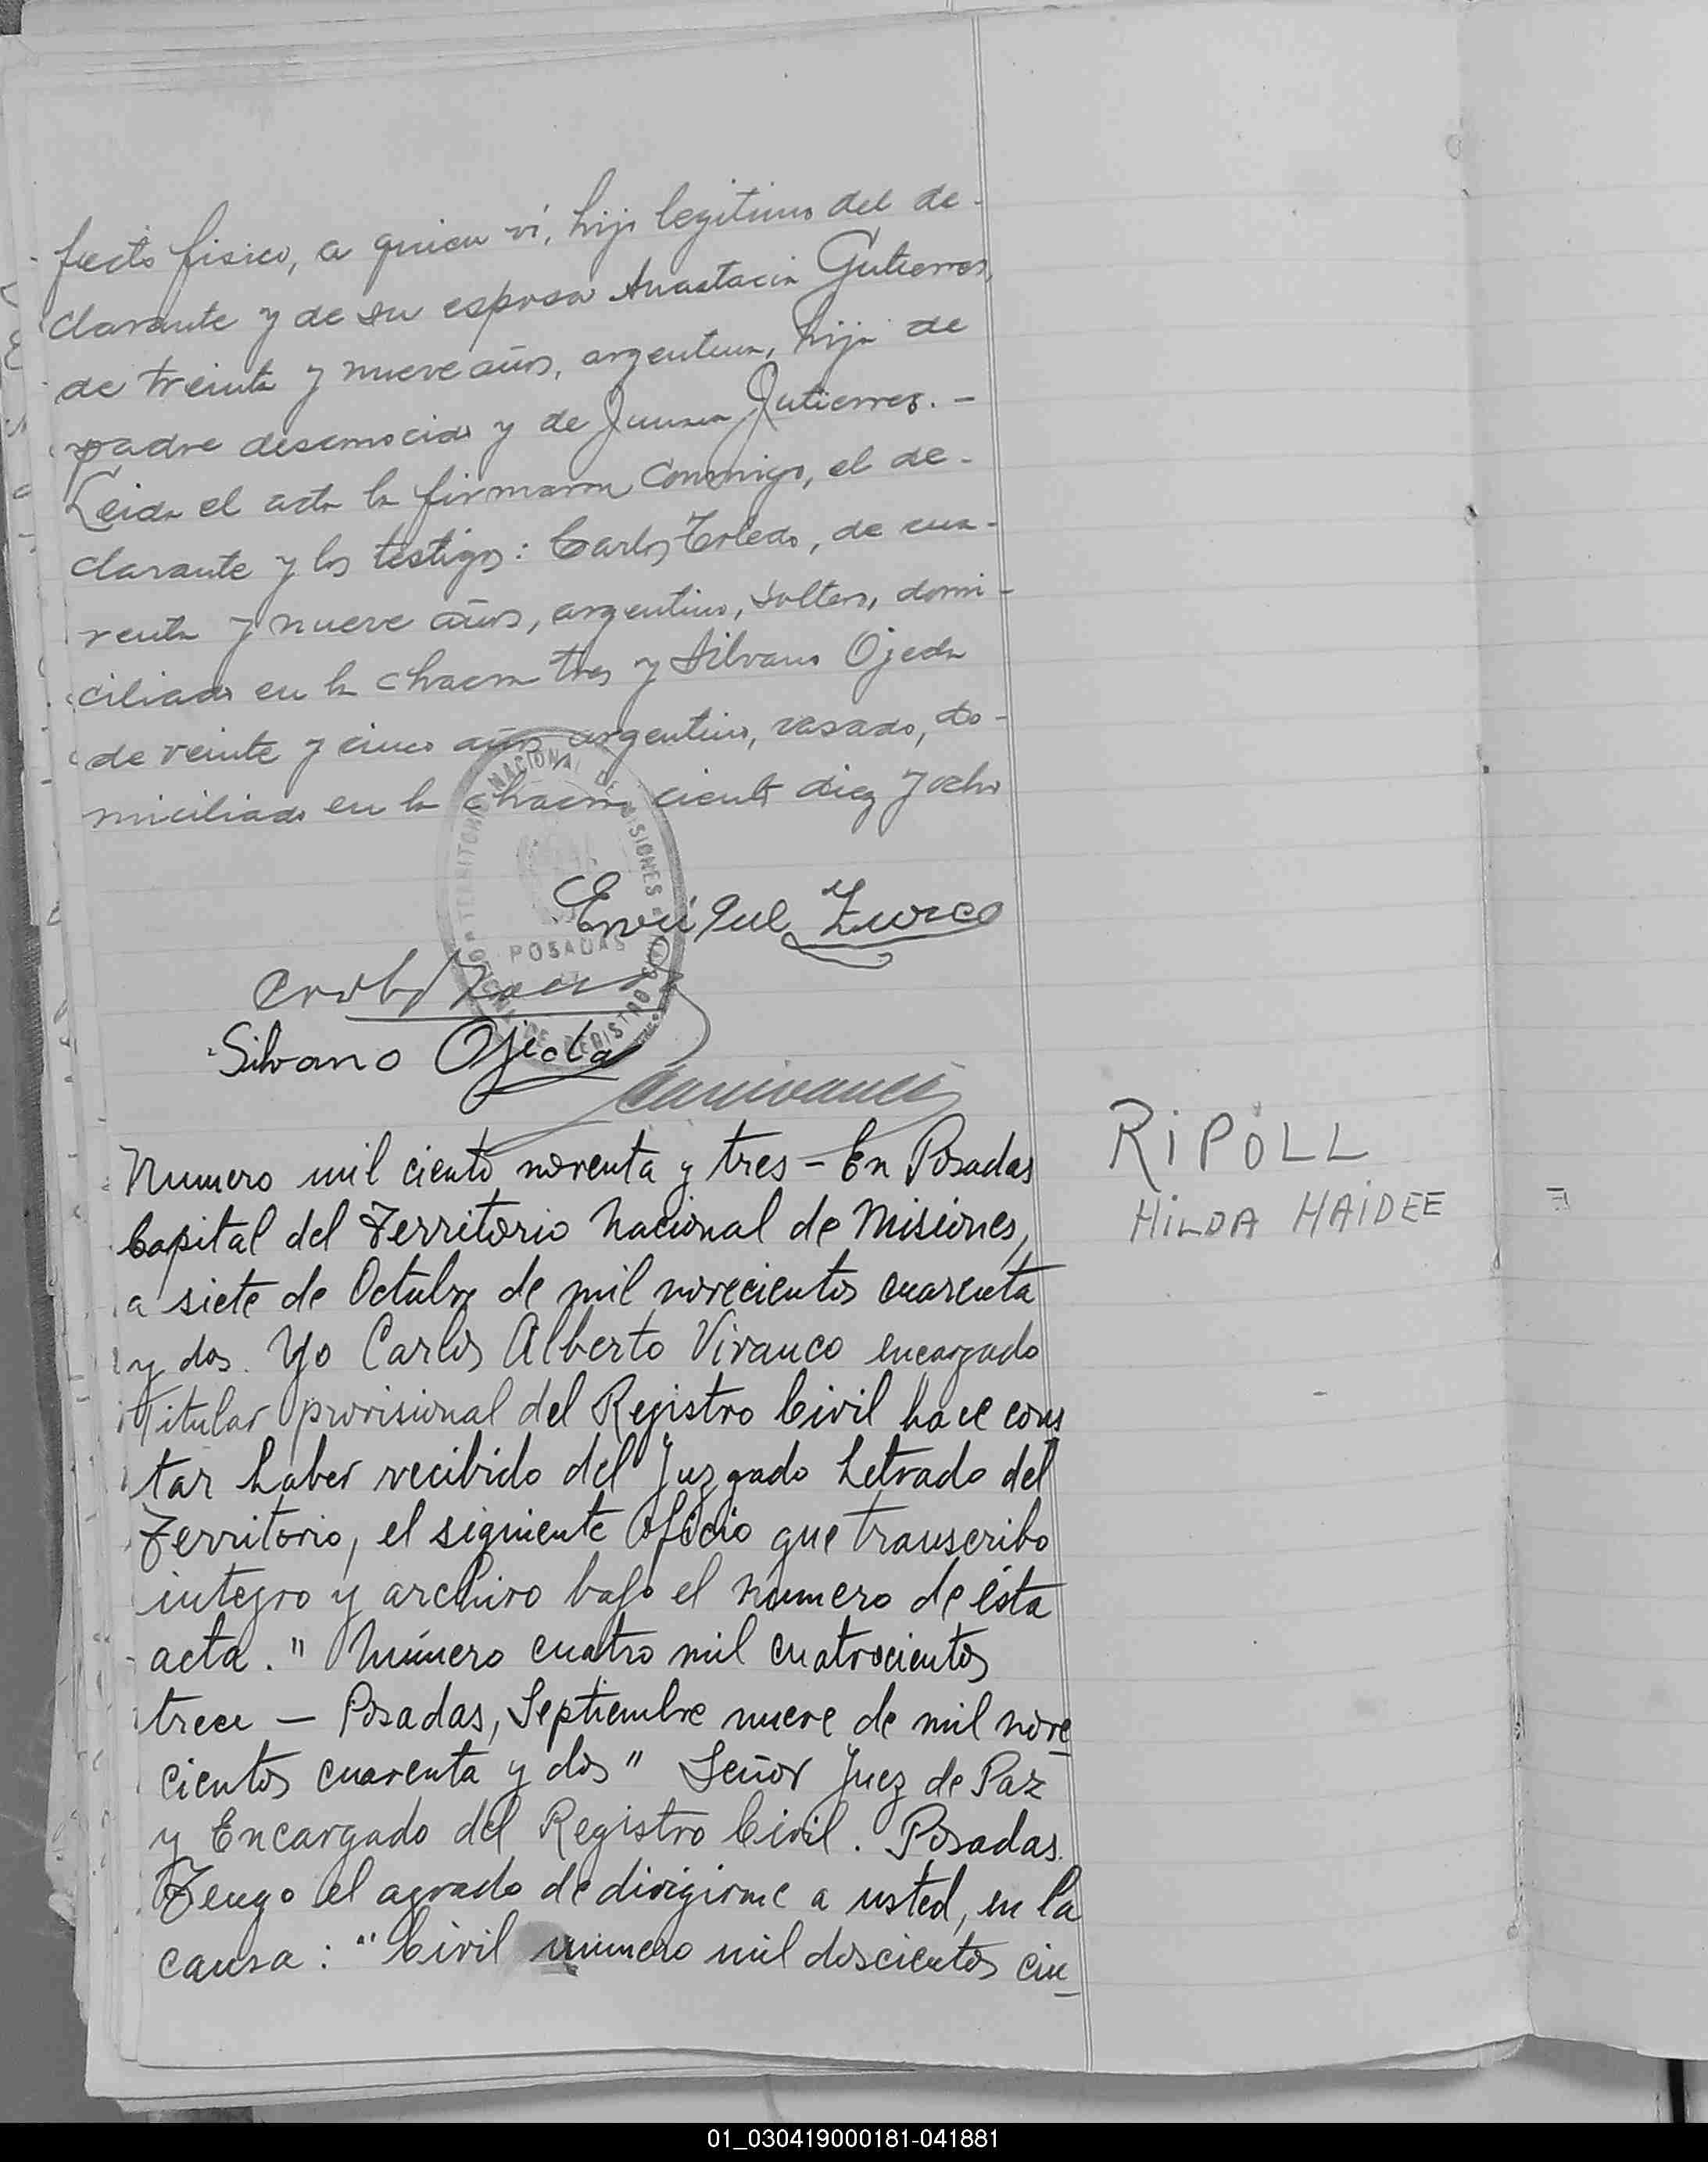 fecto fisico, a quien ví, hijo legitimo del de-
clarante y de su esposa Anastacia Gutierres,
de treinta y nueve años, argentina, hija de
padre desconocido y de Juana Gutierres. -
Leida el acta la firmaron conmigo, el de-
clarante y los testigos: Carlos Toledo, de cua-
renta y nueve años, argentino, soltero, domi-
ciliado en la chacra tres y Silvano Ojeda
de veinte y cinco años argentino, casado, do-
miciliado en la chacra ciento diez y ocho
TERRITORIO NACIONAL DE MISIONES
POSADAS
REGISTRO CIVIL
Enrique
Silvano Ojeda
Numero mil ciento noventa y tres - En Posadas
Capital del Territorio Nacional de Misiones,
a siete de Octubre de mil novecientos cuarenta
y dos. Yo Carlos Alberto Vivanco encargado
Titular provisional del Registro Civil hace cons
tar haber recibido del Juzgado Letrado del
Territorio, el siguiente oficio que transcribo
integro y archivo bajo el numero de ésta
acta. " Número cuatro mil cuatrocientos
trece — Posadas, Septiembre nueve de mil nove
cientos cuarenta y dos " Señor Juez de Paz
y Encargado del Registro Civil. Posadas.
Tengo el agrado de dirigirme a usted, en la
causa: "Civil número mil doscientos cin-
RIPOLL
HILDA HAIDEE
01_030419000181-041881